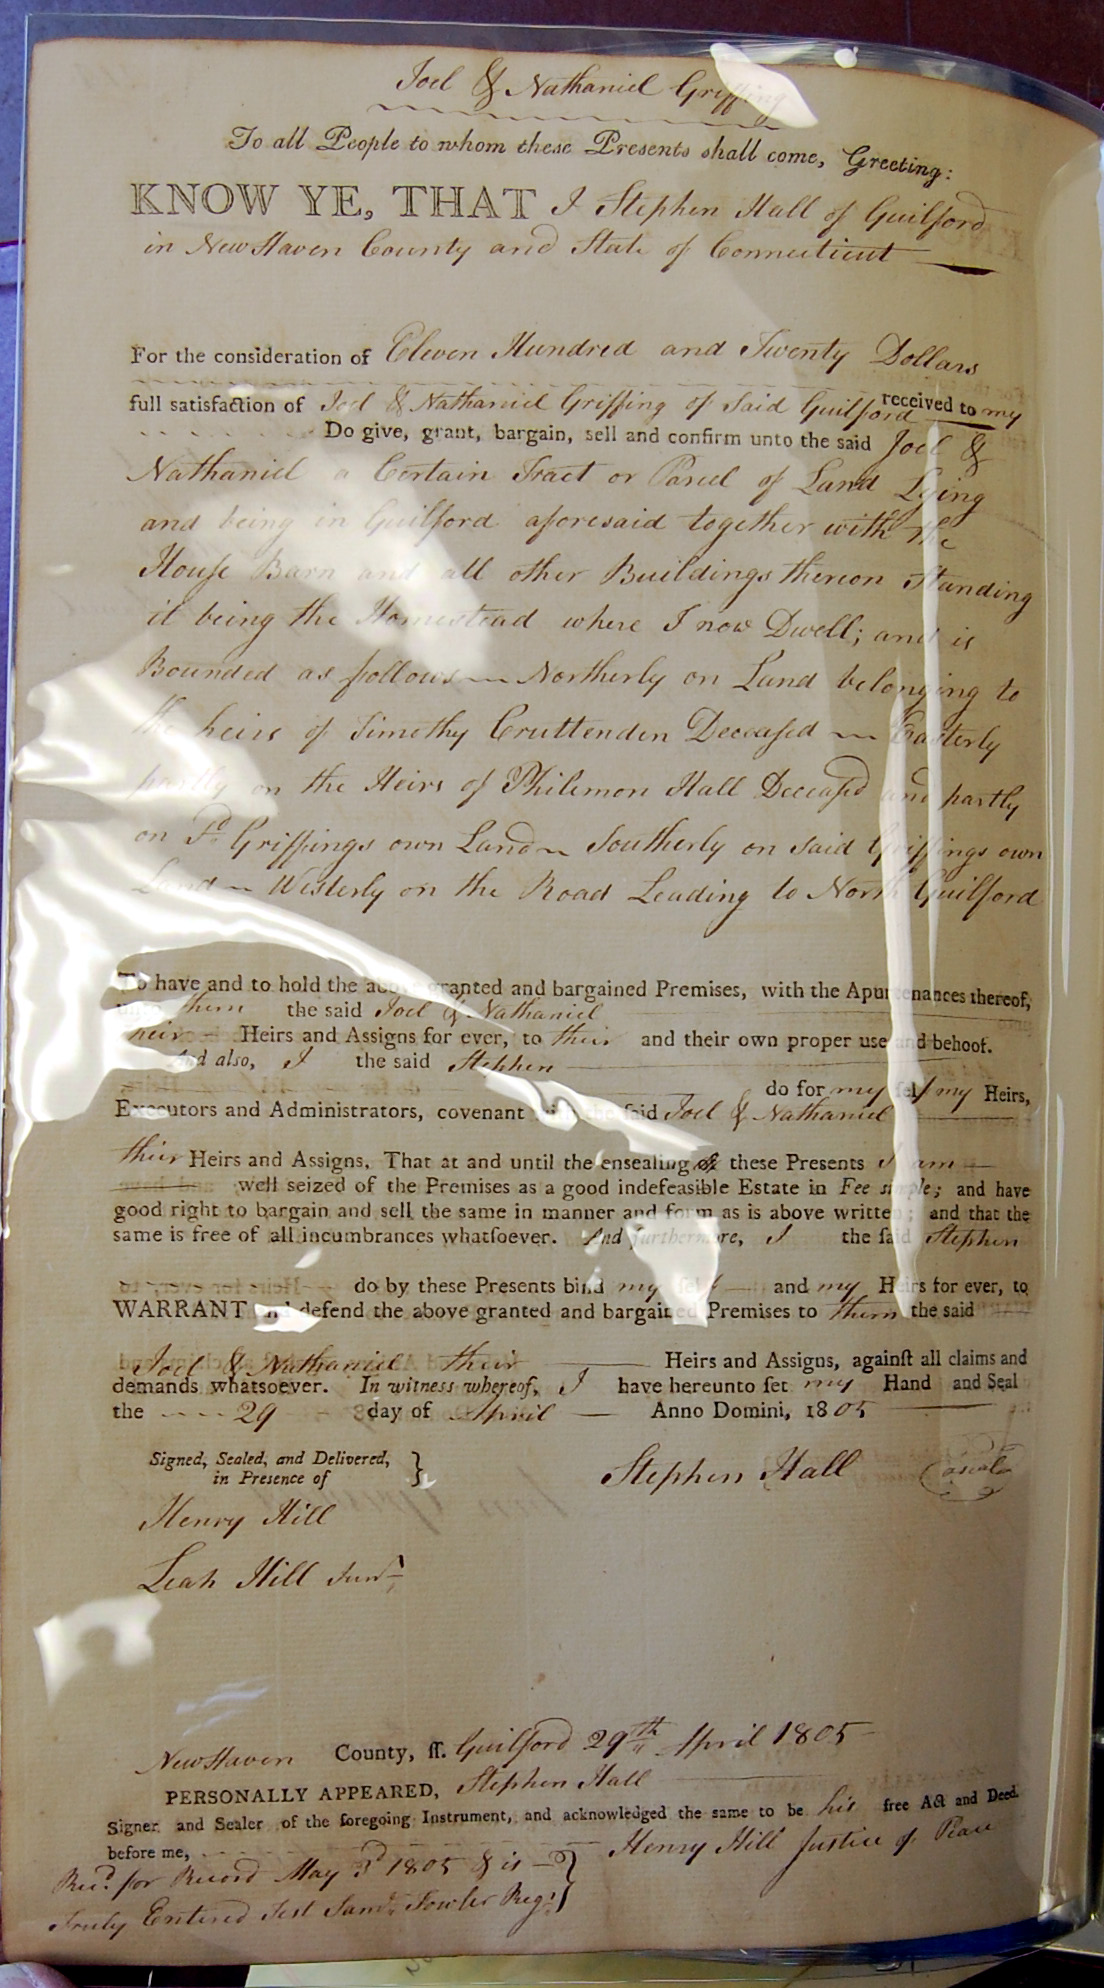 Joel & Nathaniel Griffing
To all People to whom these Presents shall come, Greeting:
KNOW YE, THAT I Stephen Hall of Guilford
in New Haven County and State of Connecticut
For the consideration of Eleven Hundred and Twenty Dollars
received to my
full satisfaction of Joel & Nathaniel Griffing of Said Guilford
Do give, grant, bargain, sell and confirm unto the said Joel &
Nathaniel a Certain Tract or Parcel of Land Lying
and being in Guilford aforesaid together with the
House Barn and all other Buildings thereon Standing
it being the Homestead where I now Dwell; and is
Bounded as follows Northerly on Land belonging to
the heirs of Timothy Cruttenden Deceased Easterly
partly on the Heirs of Philemon Hall Deceasd and partly
on Sd. Griffings own Land Southerly on said Griffings own
Land Westerly on the Road Leading to North Guilford
To have and to hold the above granted and bargained Premises, with the Apurtenances thereof,
unto them the said Joel & Nathaniel
their Heirs and Assigns for ever, to their and their own proper use and behoof.
And also, I the said Stephen
do for my self my Heirs,
Executors and Administrators, covenant with the said Joel & Nathaniel
their Heirs and Assigns, That at and until the ensealing of these Presents I am
well seized of the Premises as a good indefeasible Estate in Fee simple; and have
good right to bargain and sell the same in manner and form as is above written; and that the
same is free of all incumbrances whatsoever. And furthermore, I the said Stephen
do by these Presents bind my self and my Heirs for ever, to
WARRANT and defend the above granted and bargained Premises to them the said
Joel & Nathaniel their Heirs and Assigns, against all claims and
demands whatsoever. In witness whereof, I have hereunto set my Hand and Seal
the 29 day of April Anno Domini, 1805
Signed, Sealed, and Delivered,
in Presence of
Stephen Hall a seal
Henry Hill
Leah Hill Junr
New Haven County, ss. Guilford 29th April 1805
PERSONALLY APPEARED, Stephen Hall
Signer and Sealer of the foregoing Instrument, and acknowledged the same to be his free Act and Deed.
before me, Henry Hill Justice of Peace
Recd. for Record May 1805 & is
Truly Entered Test Saml. Fowler Regr.